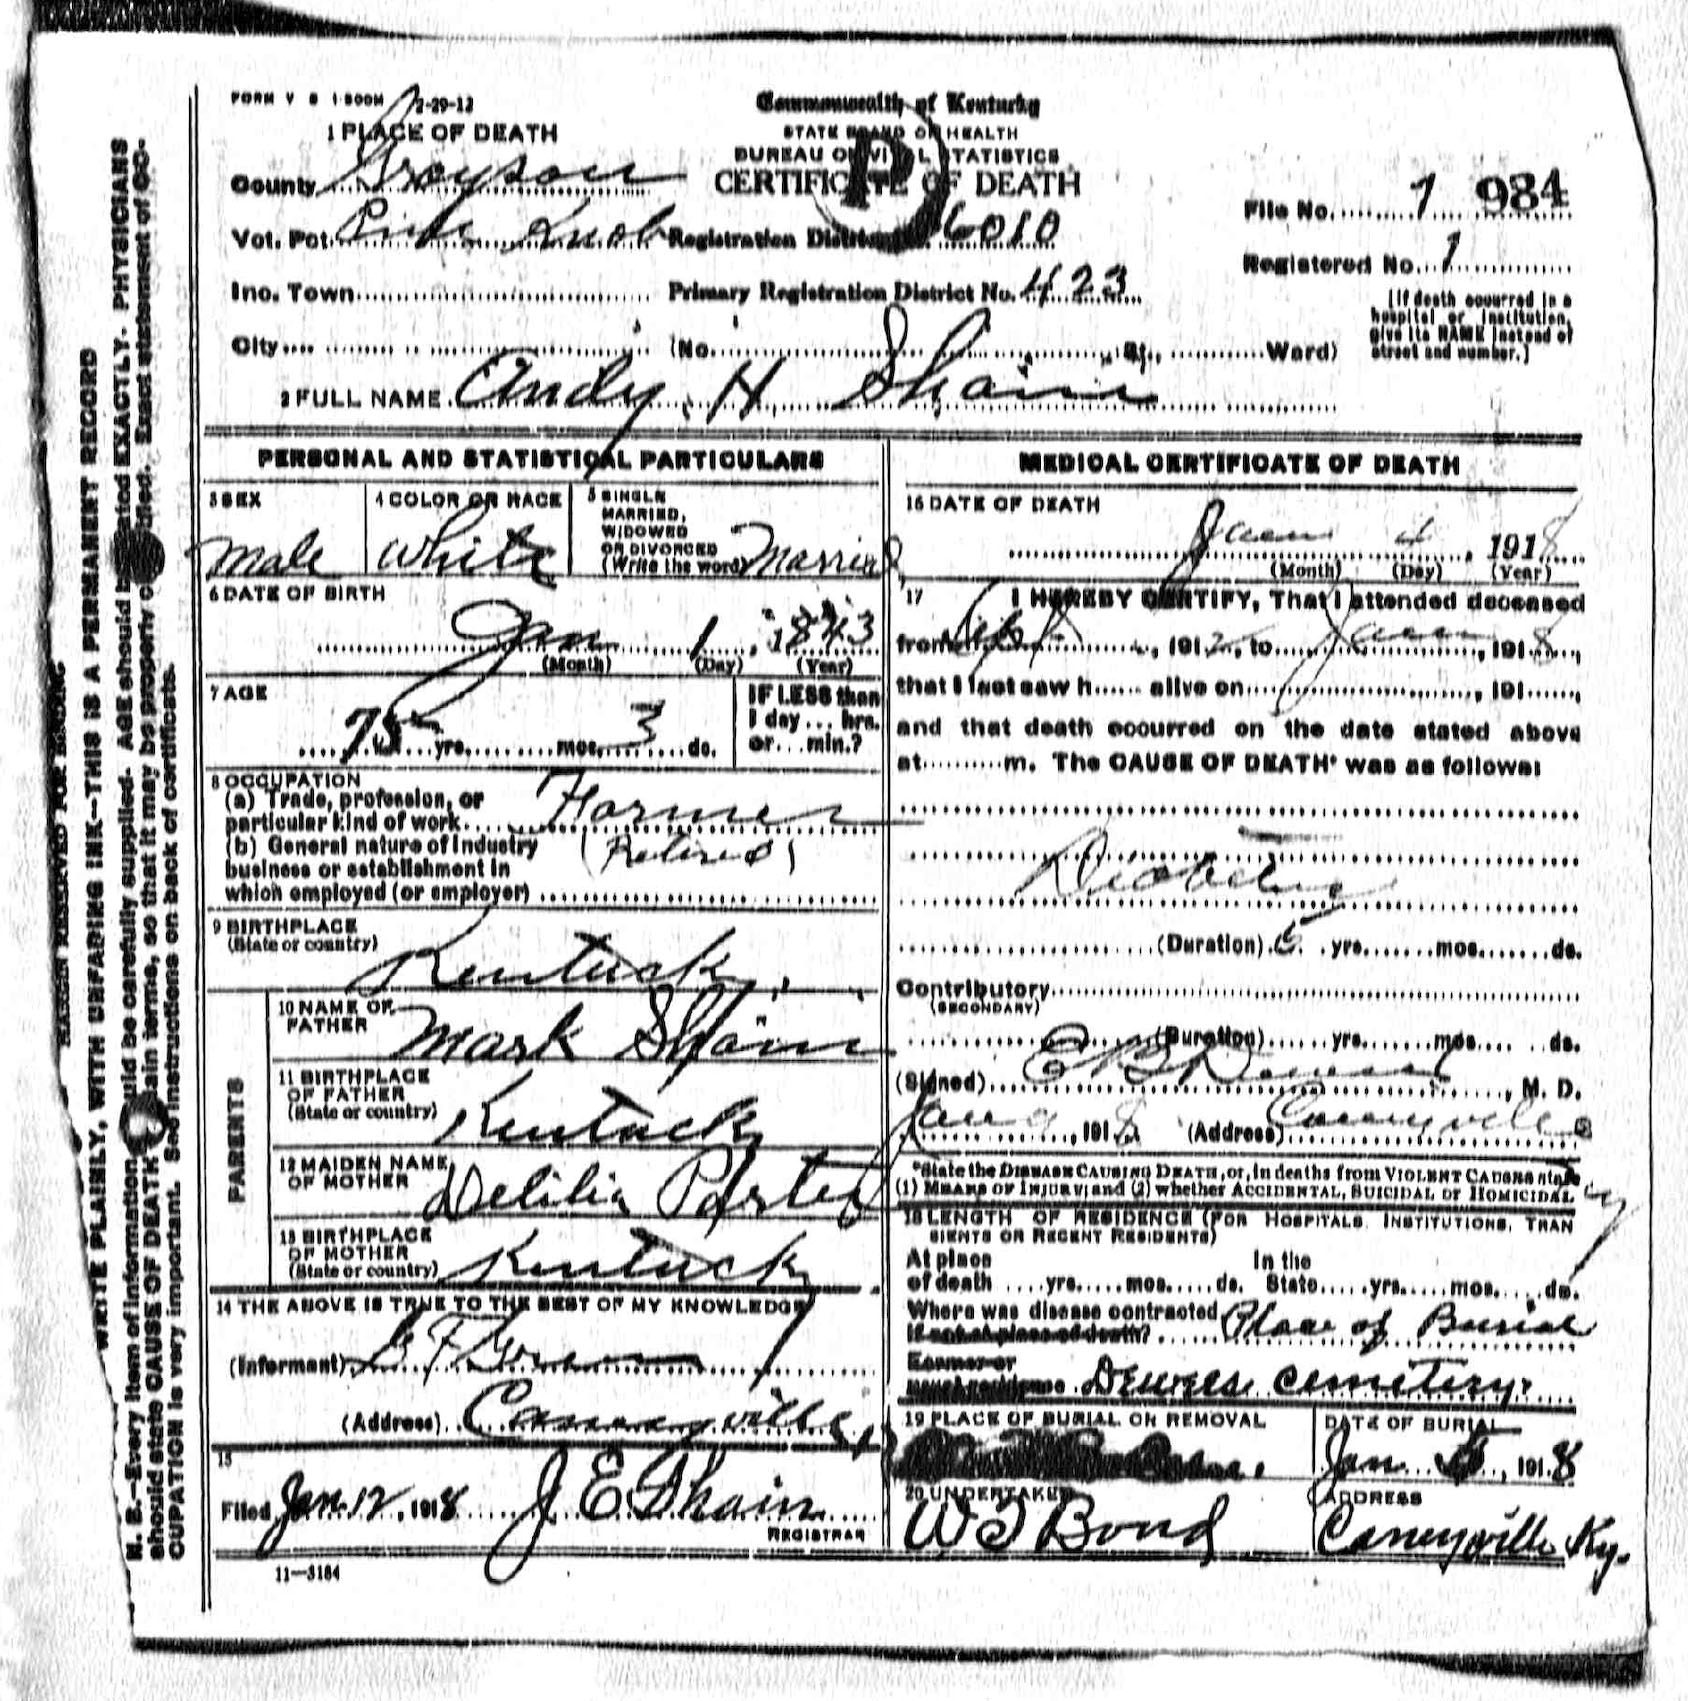 FORM V S 1-500M 2-29-12
Commonwealth of Kentucky
STATE BOARD OF HEALTH
BUREAU OF VITAL STATISTICS
CERTIFICATE OF DEATH
1 PLACE OF DEATH
County Grayson
Vot. Pct. Pine Knob Registration District 6010
Inc. Town Primary Registration District No. 423
City (No. St., Ward)
File No. 1 984
Registered No. 1
(If death occurred in a
hospital or institution,
give its NAME instead of
street and number.)
2 FULL NAME Andy H Shain
PERSONAL AND STATISTICAL PARTICULARS
3 SEX
Male
4 COLOR OR RACE
White
5 SINGLE
MARRIED,
WIDOWED
OR DIVORCED
(Write the word) Married
6 DATE OF BIRTH
Jan 1, 1843
(Month) (Day) (Year)
7 AGE
75 yrs. mos. 3 ds.
IF LESS than
1 day... hrs.
or... min.?
8 OCCUPATION
(a) Trade, profession, or
particular kind of work Farmer
(b) General nature of industry (Retired)
business or establishment in
which employed (or employer)
9 BIRTHPLACE
(State or country)
Kentucky
PARENTS
10 NAME OF
FATHER Mark Shain
11 BIRTHPLACE
OF FATHER
(State or country) Kentucky
12 MAIDEN NAME
OF MOTHER Delilia Porter
13 BIRTHPLACE
OF MOTHER
(State or country) Kentucky
14 THE ABOVE IS TRUE TO THE BEST OF MY KNOWLEDGE
(Informant)
(Address) Caneyville, Ky
15
Filed Jan 12, 1918 J E Shain
REGISTRAR
11-3184
MEDICAL CERTIFICATE OF DEATH
16 DATE OF DEATH
Jan 4, 1918
(Month) (Day) (Year)
17 I HEREBY CERTIFY, That I attended deceased
from Sept, 1912, to Jan, 1918,
that I last saw h alive on , 191 ,
and that death occurred on the date stated above
at m. The CAUSE OF DEATH* was as follows:
Diabetes
(Duration) 5 yrs. mos. ds.
Contributory
(SECONDARY)
(Duration) yrs. mos. ds.
(Signed) E B Dewees, M. D.
Jan 9, 1918 (Address) Caneyville Ky
*State the DISEASE CAUSING DEATH, or, in deaths from VIOLENT CAUSES state
(1) MEANS OF INJURY; and (2) whether ACCIDENTAL, SUICIDAL or HOMICIDAL
18 LENGTH OF RESIDENCE (FOR HOSPITALS, INSTITUTIONS, TRAN
SIENTS OR RECENT RESIDENTS)
At place In the
of death yrs. mos. ds. State yrs. mos. ds.
Where was disease contracted Place of Burial
if not at place of death?
Former or
usual residence Dewees Cemetery
19 PLACE OF BURIAL OR REMOVAL
DATE OF BURIAL
Jan , 1918
20 UNDERTAKER
W T Bond
ADDRESS
Caneyville Ky.
MARGIN RESERVED FOR BINDING
WRITE PLAINLY, WITH UNFADING INK—THIS IS A PERMANENT RECORD
N. B.—Every item of information should be carefully supplied. AGE should be stated EXACTLY. PHYSICIANS
should state CAUSE OF DEATH in plain terms, so that it may be properly classified. Exact statement of OC-
CUPATION is very important. See instructions on back of certificate.